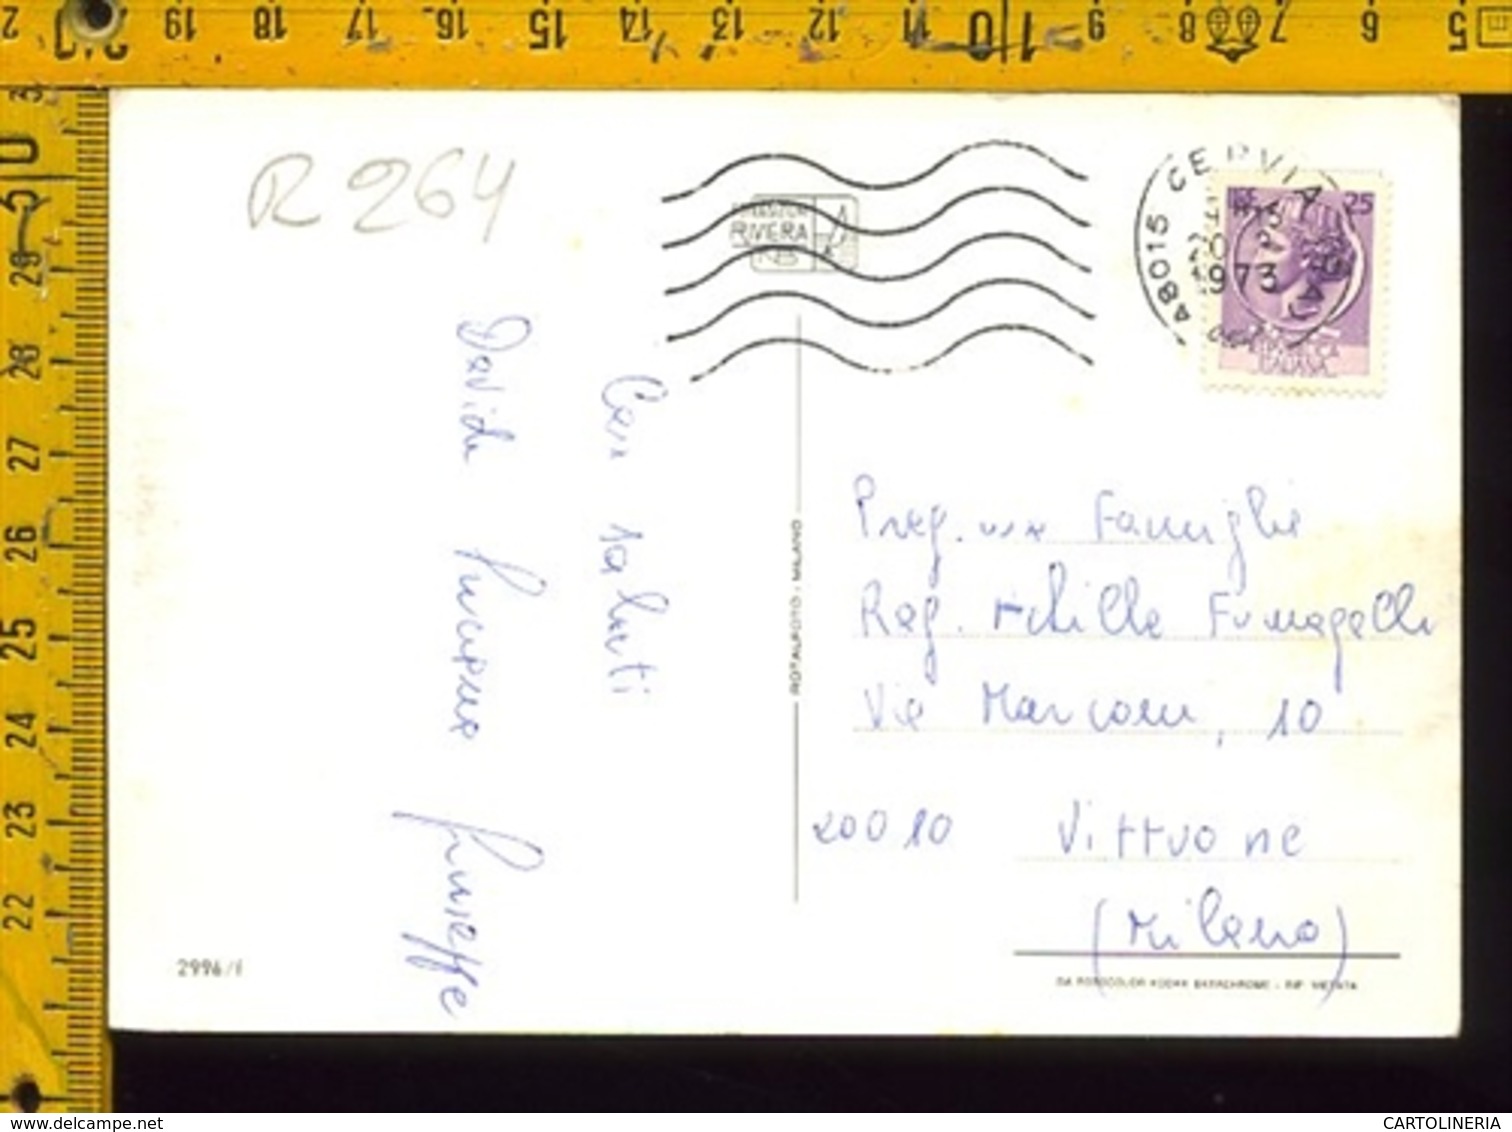 R 264
RIVIERA
48015 CERVIA
20
1973
25
Cari saluti
Davide
Giuseppe
ROTALFOTO - MILANO
Preg.ma Famiglia
Rag. Achille Fumagalli
Via Marconi, 10
20010 Vittuone
(Milano)
2996/f
DA FOTOCOLOR KODAK EKTACHROME - RIP. VIETATA
delcampe.net
CARTOLINERIA